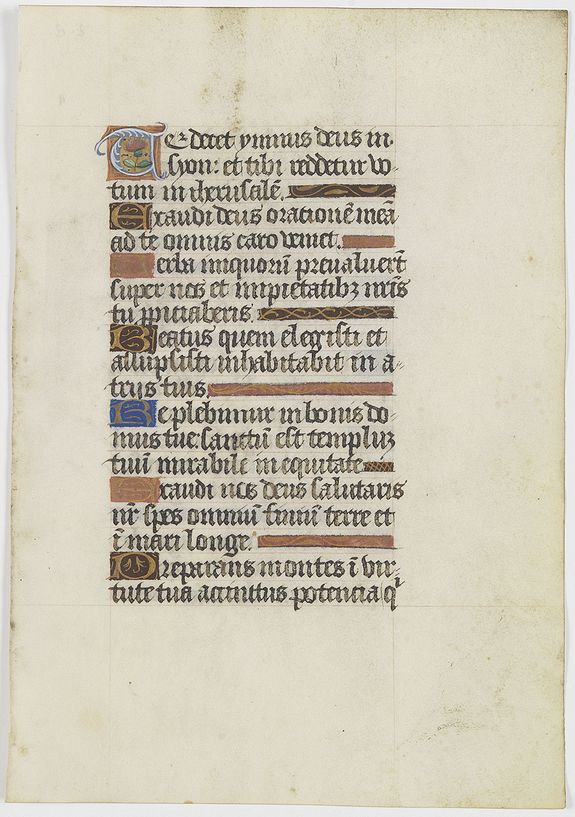 Te decet ymnus deus in
syon: et tibi reddetur vo-
tum in iherusalē.
Exaudi deus orationē meā
ad te omnis caro veniet.
Verba iniquorū preualuerūt
super nos et impietatibꝫ nr̄is
tu ꝓpiciaberis.
Beatus quem elegisti et
assūpsisti inhabitabit in a-
trijs tuis.
Replebimur in bonis do-
mus tue: sanctū est templuꝫ
tuū mirabile in equitate
Exaudi nos deus salutaris
nr̄ spes omniū finiū terre et
ī mari longe.
Preparans montes ī vir-
tute tua accinctus potencia qⁱ